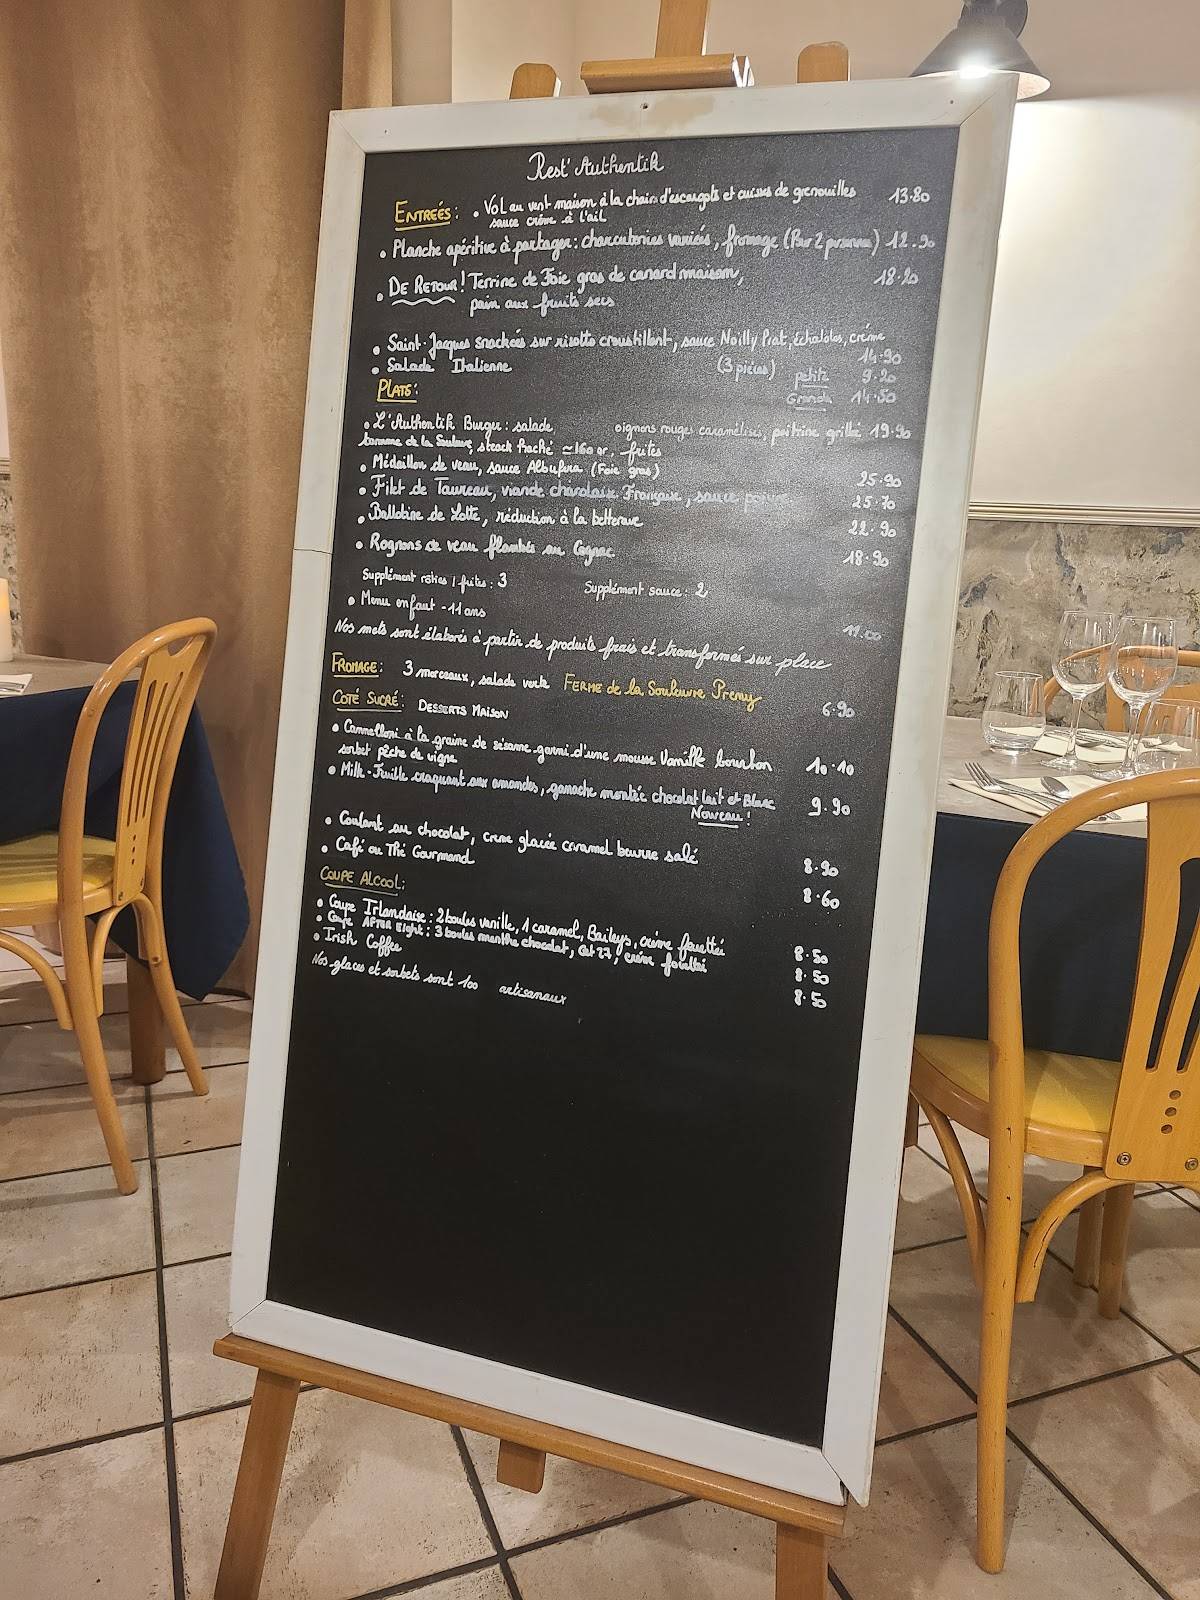 Rest' Authentik
ENTREÉS : • Vol au vent maison à la chair d'escargots et cuisses de grenouilles 13.80
sauce crème à l'ail
• Planche apéritive à partager : charcuteries variées, fromage (Pour 2 personnes) 12.90
• DE RETOUR ! Terrine de Foie gras de canard maison, 18.20
pain aux fruits secs
• Saint-Jacques snackées sur risotto croustillant, sauce Noilly Prat, échalotes, crème
(3 pièces) 14.90
• Salade Italienne petite 9.20
Grande 14.50
PLATS :
• L'Authentik Burger : salade oignons rouges caramélisés, poitrine grillée 19.90
tomme de la Souleuvre, steack haché ≃160 gr, frites
• Médaillon de veau, sauce Albufera (Foie gras) 25.90
• Filet de Taureau, viande charolaise Française, sauce poivre 25.70
• Ballotine de Lotte, réduction à la betterave 22.90
• Rognons de veau flambés au Cognac 18.90
Supplément râties / frites : 3 Supplément sauce : 2
• Menu enfant - 11 ans 11.00
Nos mets sont élaborés à partir de produits frais et transformés sur place
FROMAGE : 3 morceaux, salade verte FERME de la Souleuvre Premy 6.90
COTÉ SUCRÉ : DESSERTS MAISON
• Cannelloni à la graine de sésame garni d'une mousse Vanille bourbon 10.10
sorbet pêche de vigne
• Mille-Feuille craquant aux amandes, ganache montée chocolat lait et Blanc 9.90
Nouveau !
• Coulant au chocolat, crème glacée caramel beurre salé 8.90
• Café ou Thé Gourmand 8.60
COUPE ALCOOL :
• Coupe Irlandaise : 2 boules vanille, 1 caramel, Baileys, crème fouettée 8.50
• Coupe AFTER Eight : 3 boules menthe chocolat, Get 27, crème fouettée 8.50
• Irish Coffee 8.50
Nos glaces et sorbets sont 100 artisanaux